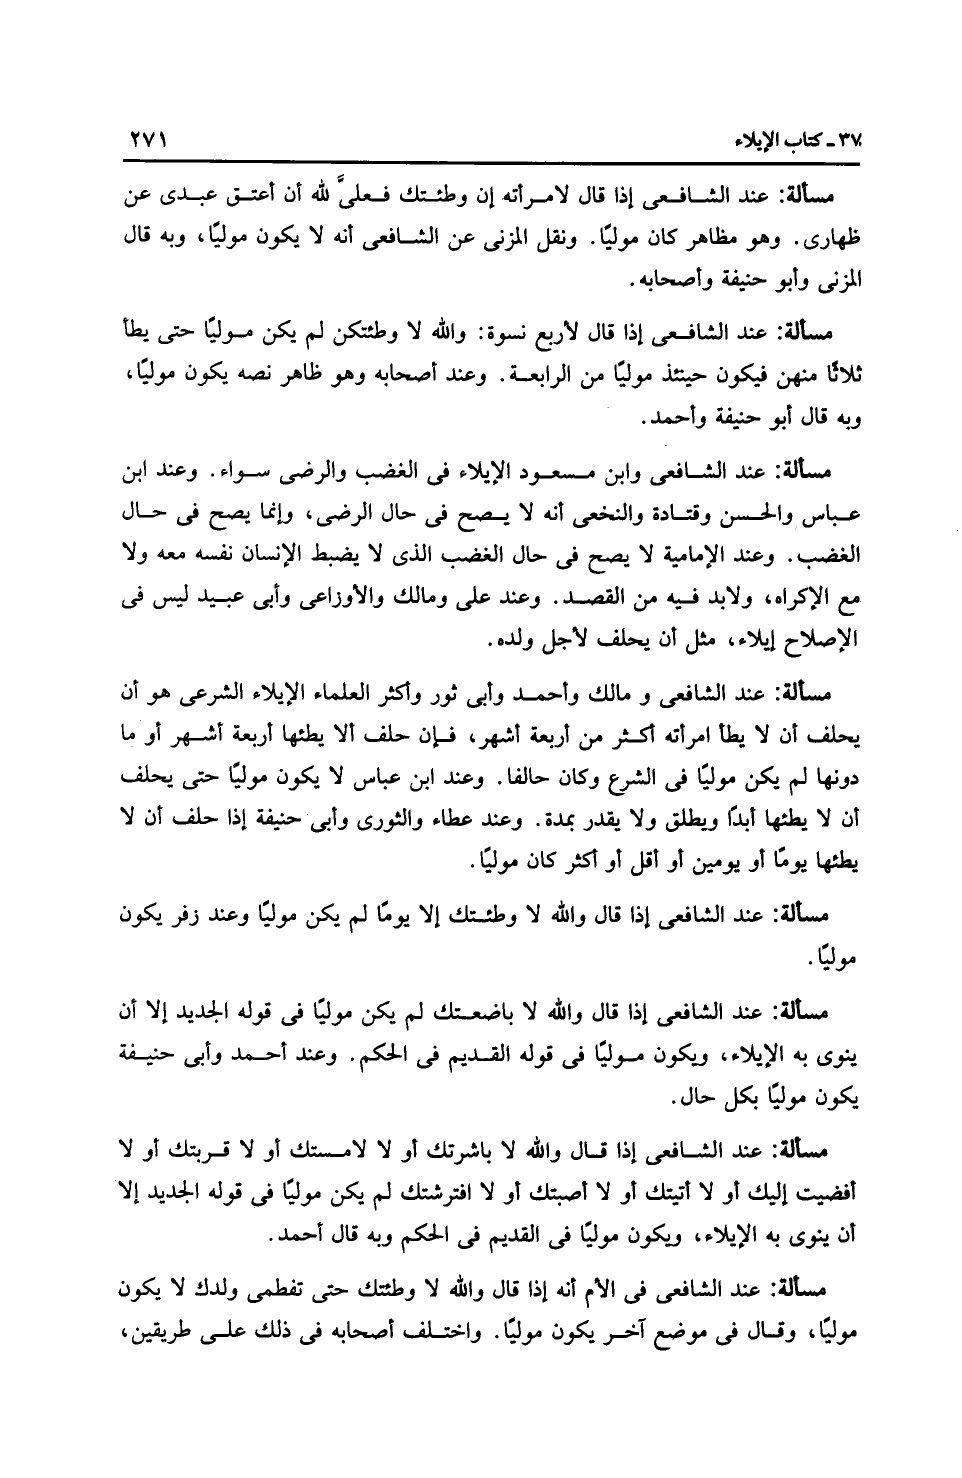 ٣٧ - كتاب الإيلاء ٢٧١
مسألة: عند الشافعى إذا قال لامرأته إن وطئتك فعلىَّ لله أن أعتق عبدى عن
ظهارى. وهو مظاهر كان موليًا. ونقل المزنى عن الشافعى أنه لا يكون موليًا، وبه قال
المزنى وأبو حنيفة وأصحابه.
مسألة: عند الشافعى إذا قال لأربع نسوة: والله لا وطئتكن لم يكن موليًا حتى يطأ
ثلاثًا منهن فيكون حينئذ موليًا من الرابعة. وعند أصحابه وهو ظاهر نصه يكون موليًا،
وبه قال أبو حنيفة وأحمد.
مسألة: عند الشافعى وابن مسعود الإيلاء فى الغضب والرضى سواء. وعند ابن
عباس والحسن وقتادة والنخعى أنه لا يصح فى حال الرضى، وإنما يصح فى حال
الغضب. وعند الإمامية لا يصح فى حال الغضب الذى لا يضبط الإنسان نفسه معه ولا
مع الإكراه، ولابد فيه من القصد. وعند على ومالك والأوزاعى وأبى عبيد ليس فى
الإصلاح إيلاء، مثل أن يحلف لأجل ولده.
مسألة: عند الشافعى و مالك وأحمد وأبى ثور وأكثر العلماء الإيلاء الشرعى هو أن
يحلف أن لا يطأ امرأته أكثر من أربعة أشهر، فإن حلف ألا يطئها أربعة أشهر أو ما
دونها لم يكن موليًا فى الشرع وكان حالفا. وعند ابن عباس لا يكون موليًا حتى يحلف
أن لا يطئها أبدًا ويطلق ولا يقدر بمدة. وعند عطاء والثورى وأبى حنيفة إذا حلف أن لا
يطئها يومًا أو يومين أو أقل أو أكثر كان موليًا.
مسألة: عند الشافعى إذا قال والله لا وطئتك إلا يومًا لم يكن موليًا وعند زفر يكون
موليًا.
مسألة: عند الشافعى إذا قال والله لا باضعتك لم يكن موليًا فى قوله الجديد إلا أن
ينوى به الإيلاء، ويكون موليًا فى قوله القديم فى الحكم. وعند أحمد وأبى حنيفة
يكون موليًا بكل حال.
مسألة: عند الشافعى إذا قال والله لا باشرتك أو لا لامستك أو لا قربتك أو لا
أفضيت إليك أو لا أتيتك أو لا أصبتك أو لا افترشتك لم يكن موليًا فى قوله الجديد إلا
أن ينوى به الإيلاء، ويكون موليًا فى القديم فى الحكم وبه قال أحمد.
مسألة: عند الشافعى فى الأم أنه إذا قال والله لا وطئتك حتى تفطمى ولدك لا يكون
موليًا، وقال فى موضع آخر يكون موليًا. واختلف أصحابه فى ذلك على طريقين،